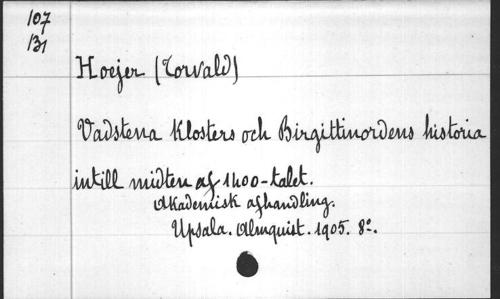 107
131
Hoejer (Torvald)
Vadstena Klosters och Birgittinordens historia
intill midten af 1400-talet.
Akademisk afhandling.
Upsala. Almquist. 1905. 8º.